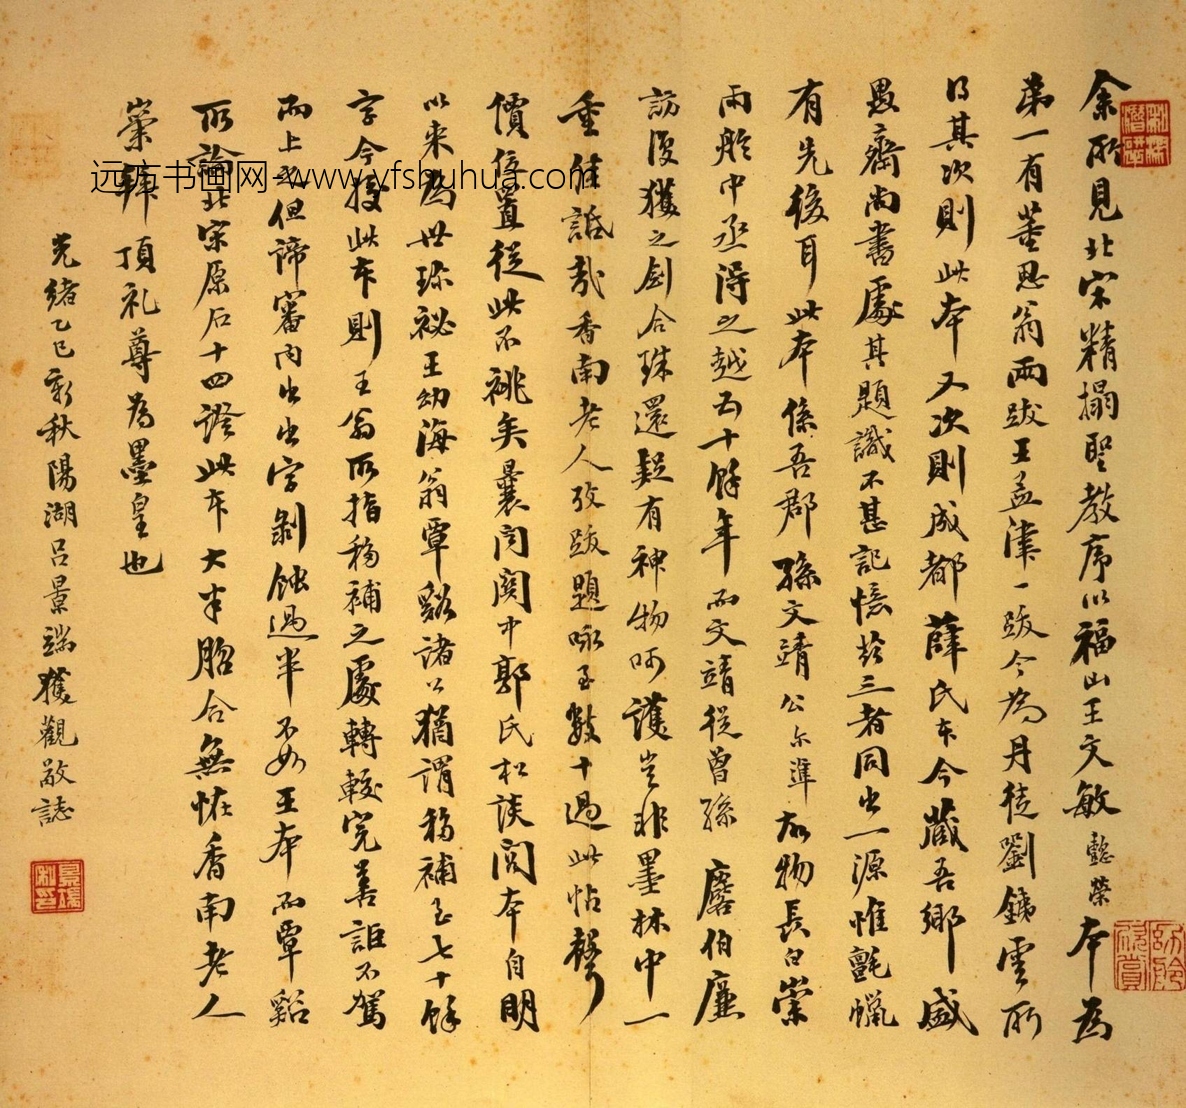 余所見北宋精搨聖教序以福山王文敏懿榮本為
第一有董思翁兩跋王孟津一跋今為丹徒劉鐵雲所
得其次則此本又次則成都薛氏本今藏吾鄉盛
愚齋尚書處其題識不甚記憶於三者同出一源惟氈蠟
有先後耳此本係吾郡孫文靖公尔準故物長白崇
雨舲中丞得之越五十餘年而文靖從曾孫廎伯廉
訪復獲之劍合珠還疑有神物呵護豈非墨林中一
重佳話哉香南老人攷跋題咏至數十過此帖聲
價位置從此不祧矣曩閱関中郭氏松談閣本自明
以来為世珍祕王幼海翁覃谿諸公猶謂移補至七十餘
字今援此本則王翁所指移補之處轉較完善詎不駕
而上之但諦審内出出字剝蝕過半不如王本而覃谿
所論北宋原石十四證此本大半脗合無怪香南老人
崇拜頂礼尊為墨皇也
光緒乙巳新秋陽湖呂景端獲觀敬誌
景端
远方书画网-www.yfshuhua.com